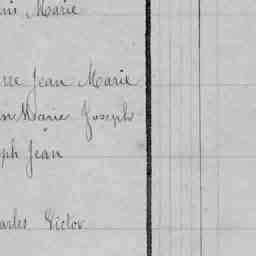 Marie
Jean Marie
Marie Joseph
ph Jean
arles Victor